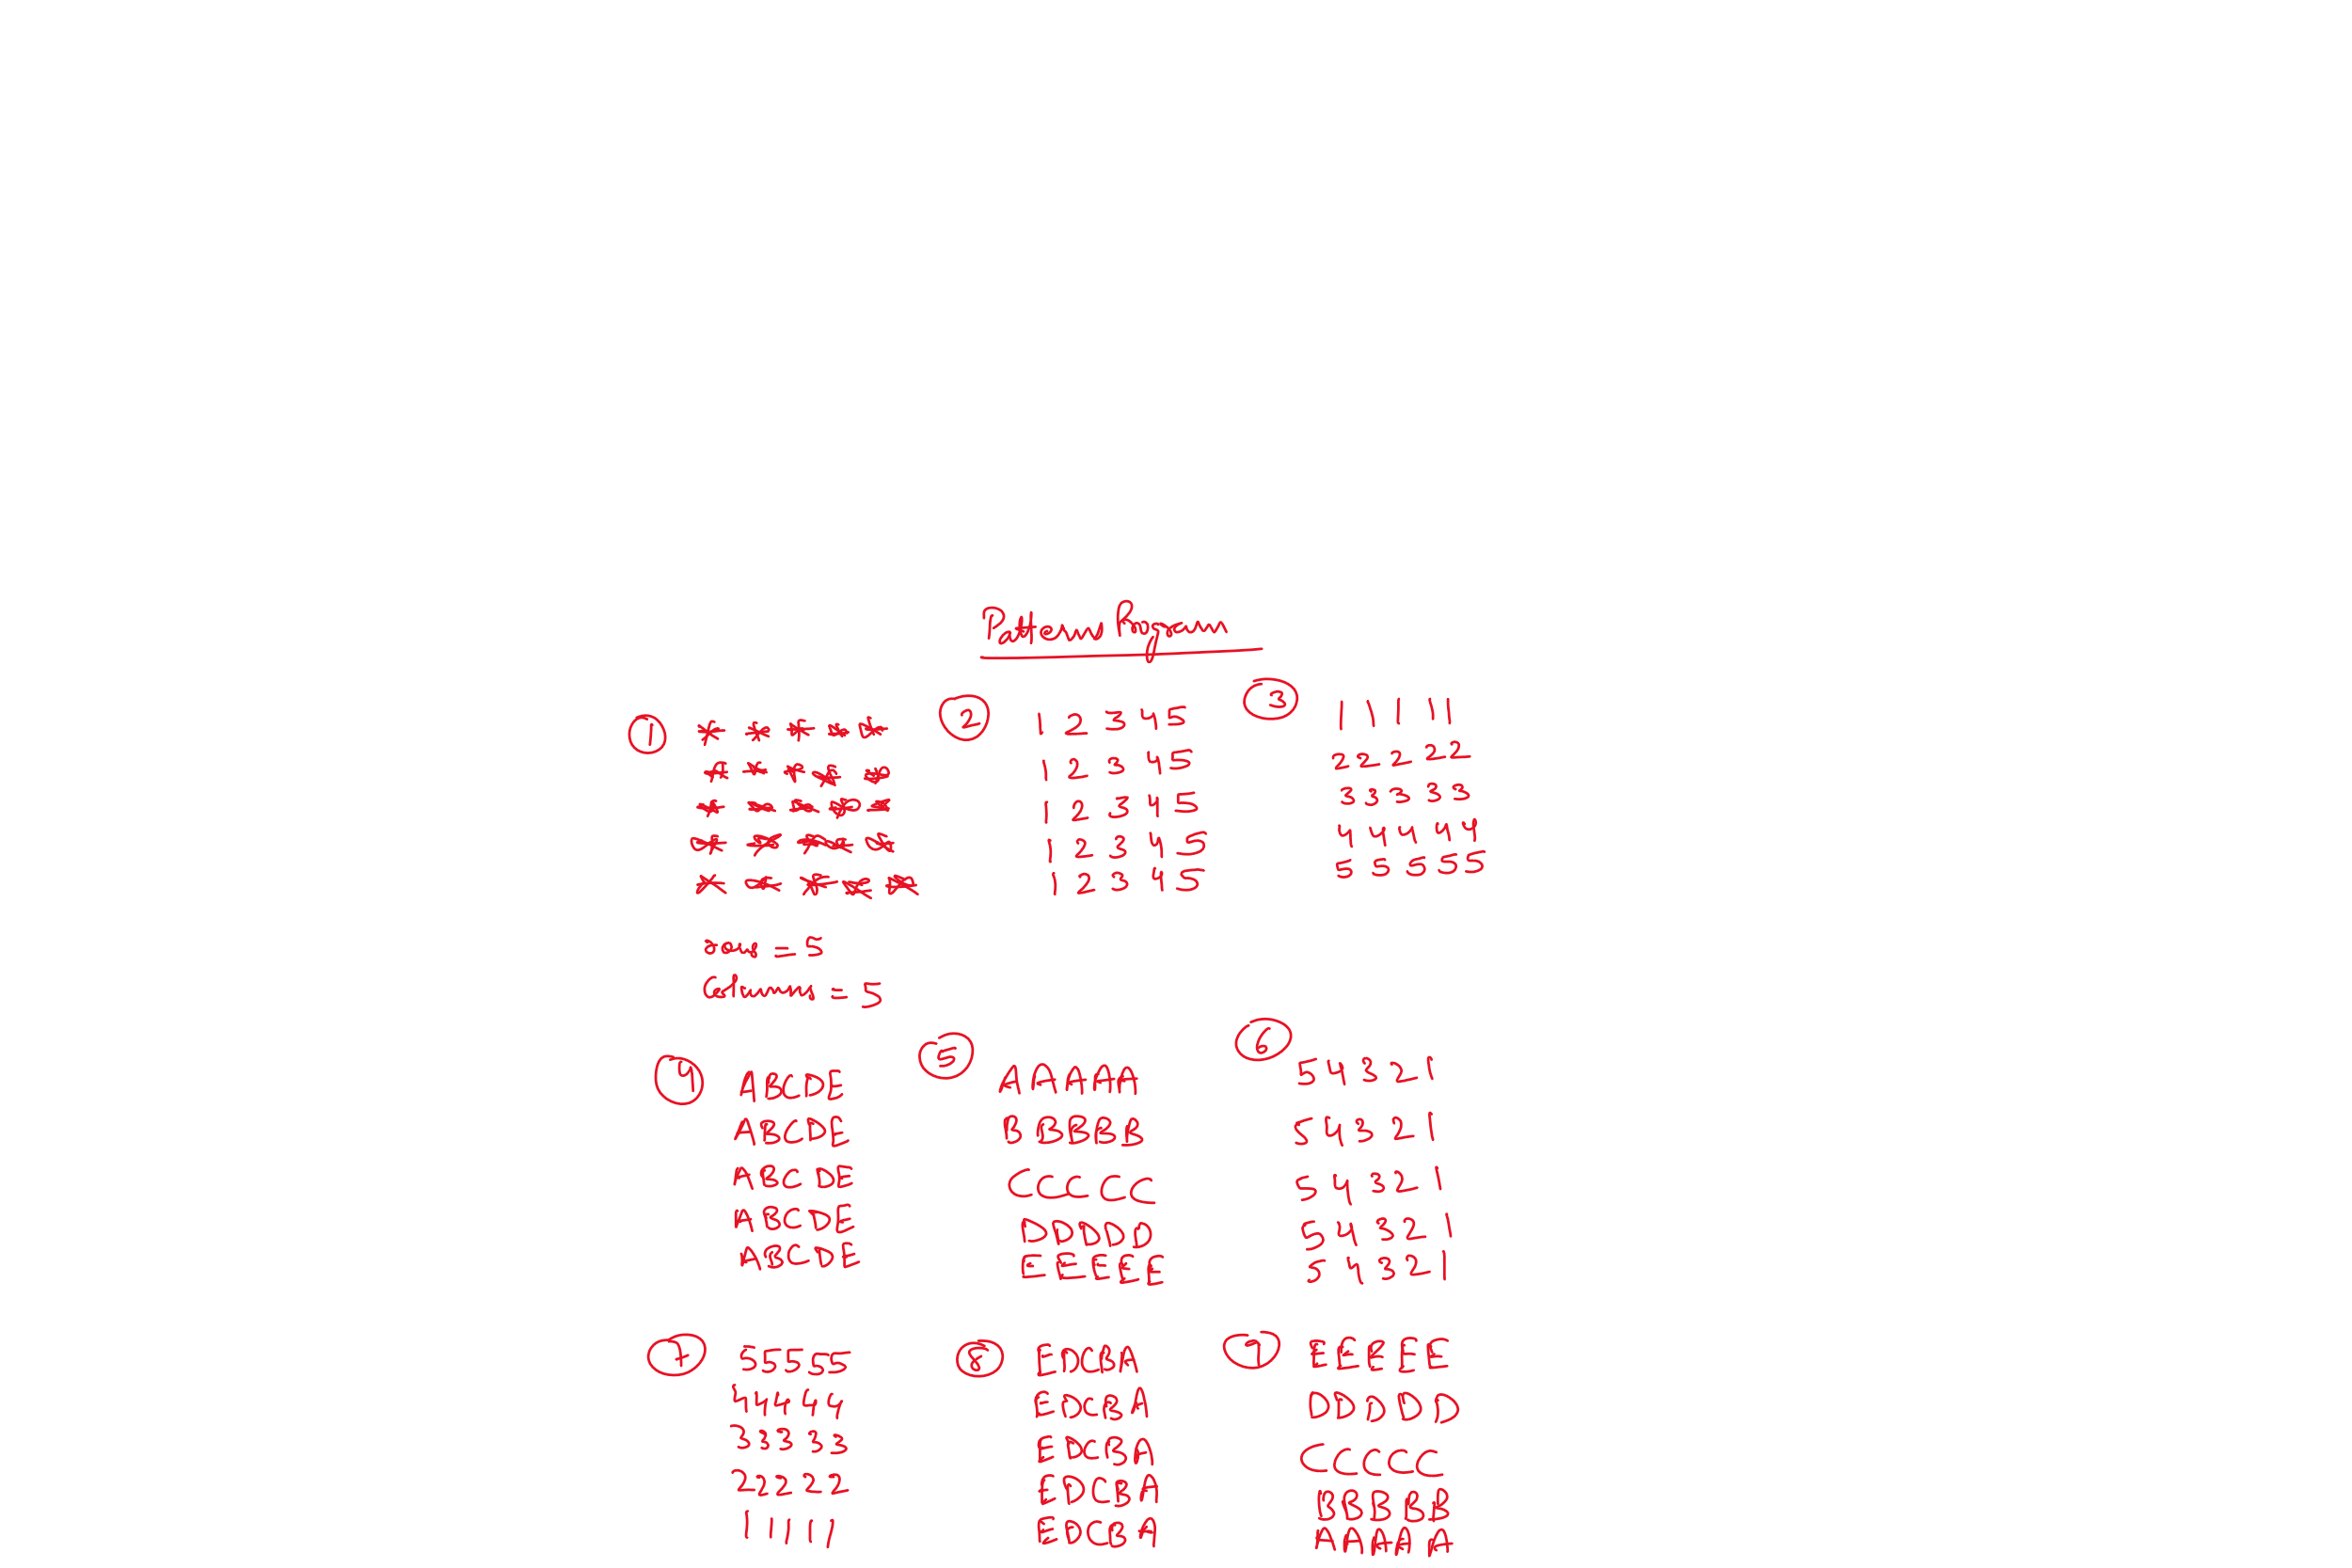 Pattern Program
1
* * * * *
* * * * *
* * * * *
* * * * *
* * * * *
rows = 5
Columns = 5
2
1 2 3 4 5
1 2 3 4 5
1 2 3 4 5
1 2 3 4 5
1 2 3 4 5
3
1 1 1 1 1
2 2 2 2 2
3 3 3 3 3
4 4 4 4 4
5 5 5 5 5
4
A B C D E
A B C D E
A B C D E
A B C D E
A B C D E
5
A A A A A
B B B B B
C C C C C
D D D D D
E E E E E
6
5 4 3 2 1
5 4 3 2 1
5 4 3 2 1
5 4 3 2 1
5 4 3 2 1
7
5 5 5 5 5
4 4 4 4 4
3 3 3 3 3
2 2 2 2 2
1 1 1 1 1
8
E D C B A
E D C B A
E D C B A
E D C B A
E D C B A
9
E E E E E
D D D D D
C C C C C
B B B B B
A A A A A